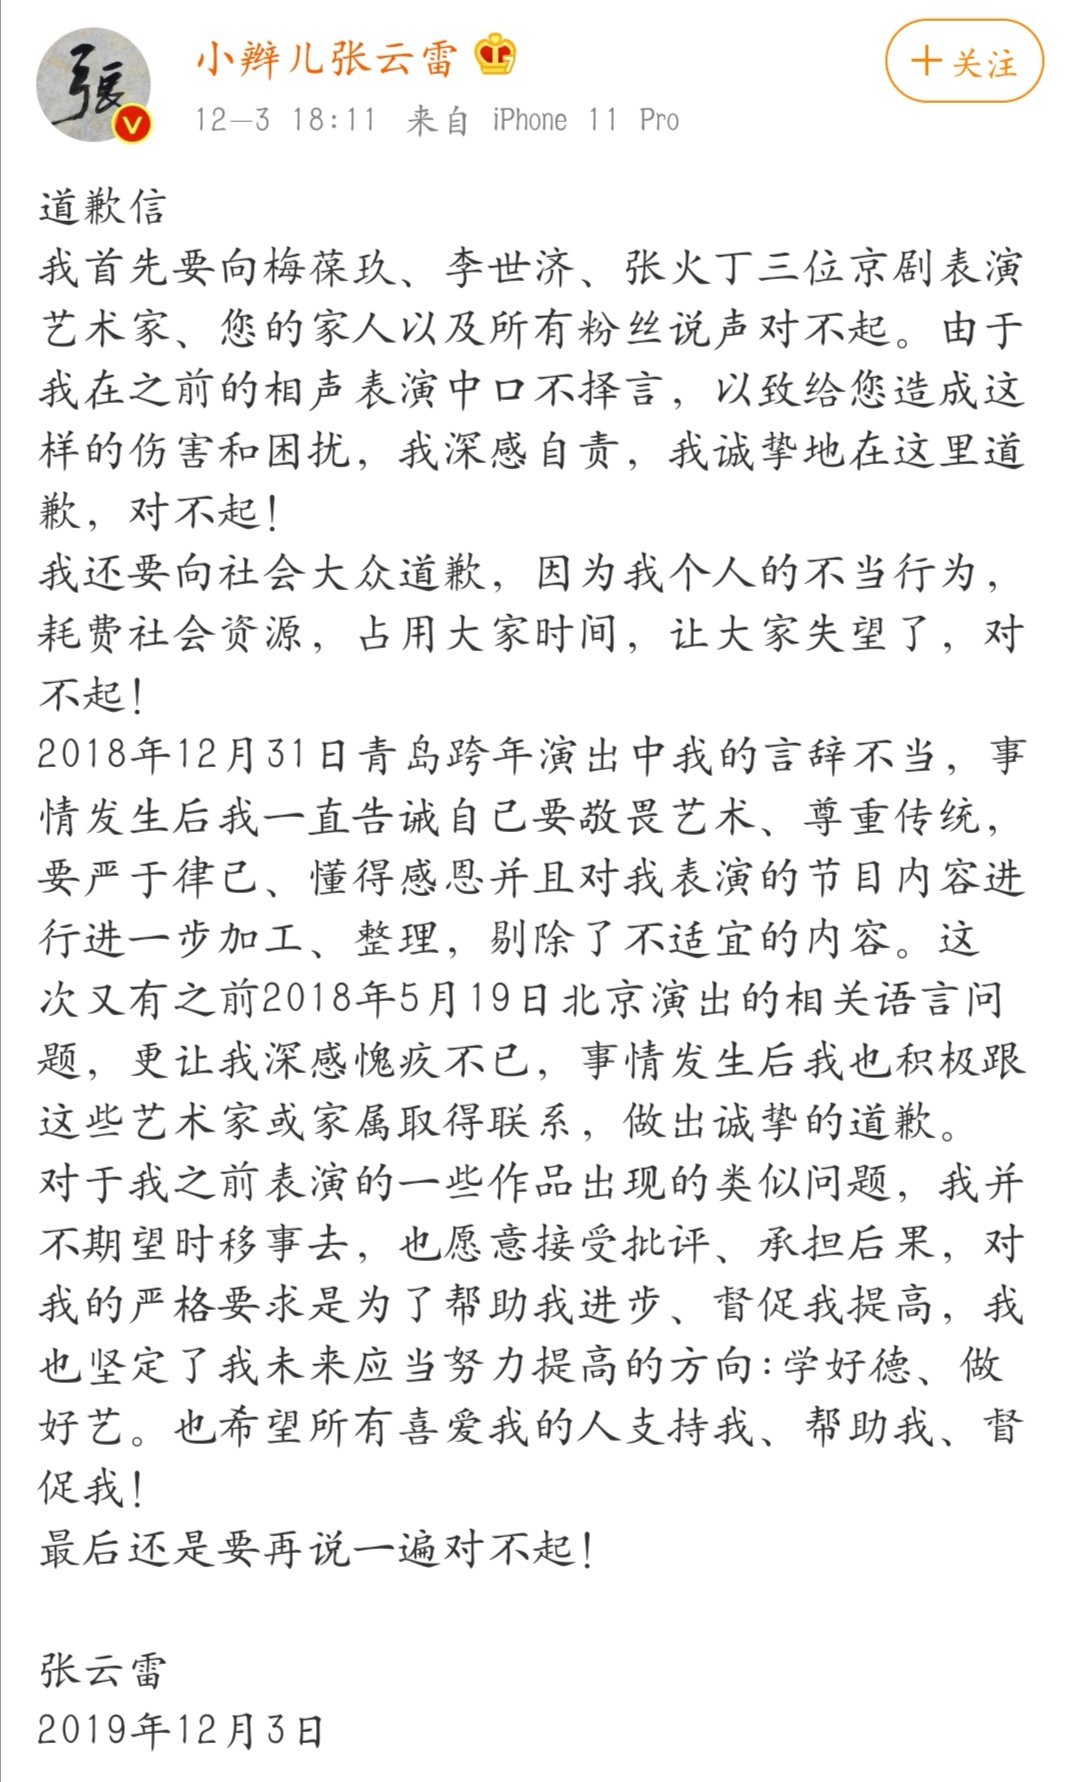 小辫儿张云雷
+关注
12-3 18:11 来自 iPhone 11 Pro
道歉信
我首先要向梅葆玖、李世济、张火丁三位京剧表演
艺术家、您的家人以及所有粉丝说声对不起。由于
我在之前的相声表演中口不择言，以致给您造成这
样的伤害和困扰，我深感自责，我诚挚地在这里道
歉，对不起！
我还要向社会大众道歉，因为我个人的不当行为，
耗费社会资源，占用大家时间，让大家失望了，对
不起！
2018年12月31日青岛跨年演出中我的言辞不当，事
情发生后我一直告诫自己要敬畏艺术、尊重传统，
要严于律己、懂得感恩并且对我表演的节目内容进
行进一步加工、整理，剔除了不适宜的内容。这
次又有之前2018年5月19日北京演出的相关语言问
题，更让我深感愧疚不已，事情发生后我也积极跟
这些艺术家或家属取得联系，做出诚挚的道歉。
对于我之前表演的一些作品出现的类似问题，我并
不期望时移事去，也愿意接受批评、承担后果，对
我的严格要求是为了帮助我进步、督促我提高，我
也坚定了我未来应当努力提高的方向:学好德、做
好艺。也希望所有喜爱我的人支持我、帮助我、督
促我！
最后还是要再说一遍对不起！
张云雷
2019年12月3日
张
V